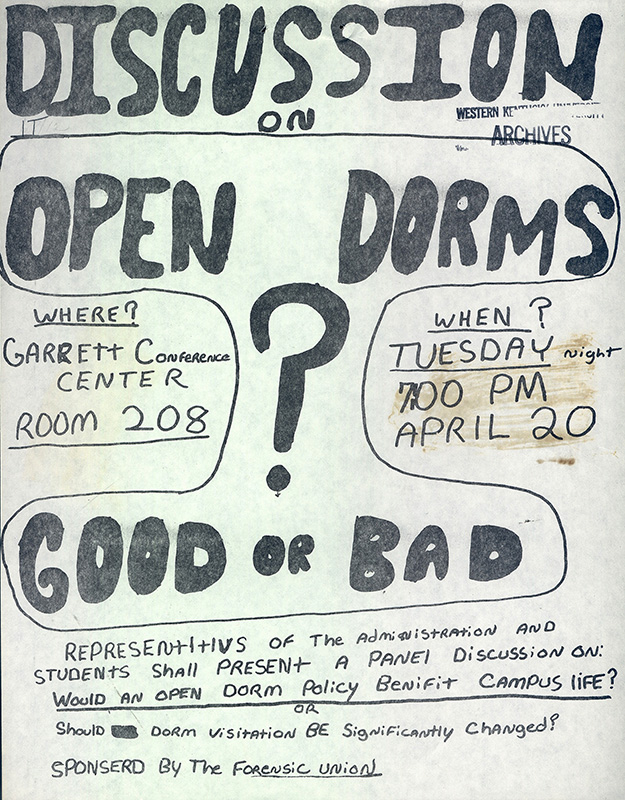 DISCUSSION
ON
WESTERN KENTUCKY UNIVERSITY
ARCHIVES
OPEN DORMS
?
WHERE?
GARRETT CONFERENCE
CENTER
ROOM 208
WHEN?
TUESDAY night
7:00 PM
APRIL 20
GOOD OR BAD
REPRESENtItIVS OF The AdmiNISTRATION AND
STUDENTS Shall PRESENT A PANEl Discussion ON:
Would AN OPEN DORM Policy BENIFIT CAMPUS lIFE?
OR
Should DORM Visitation BE Significantly Changed?
SPONSERD By The FORENSIC UNION